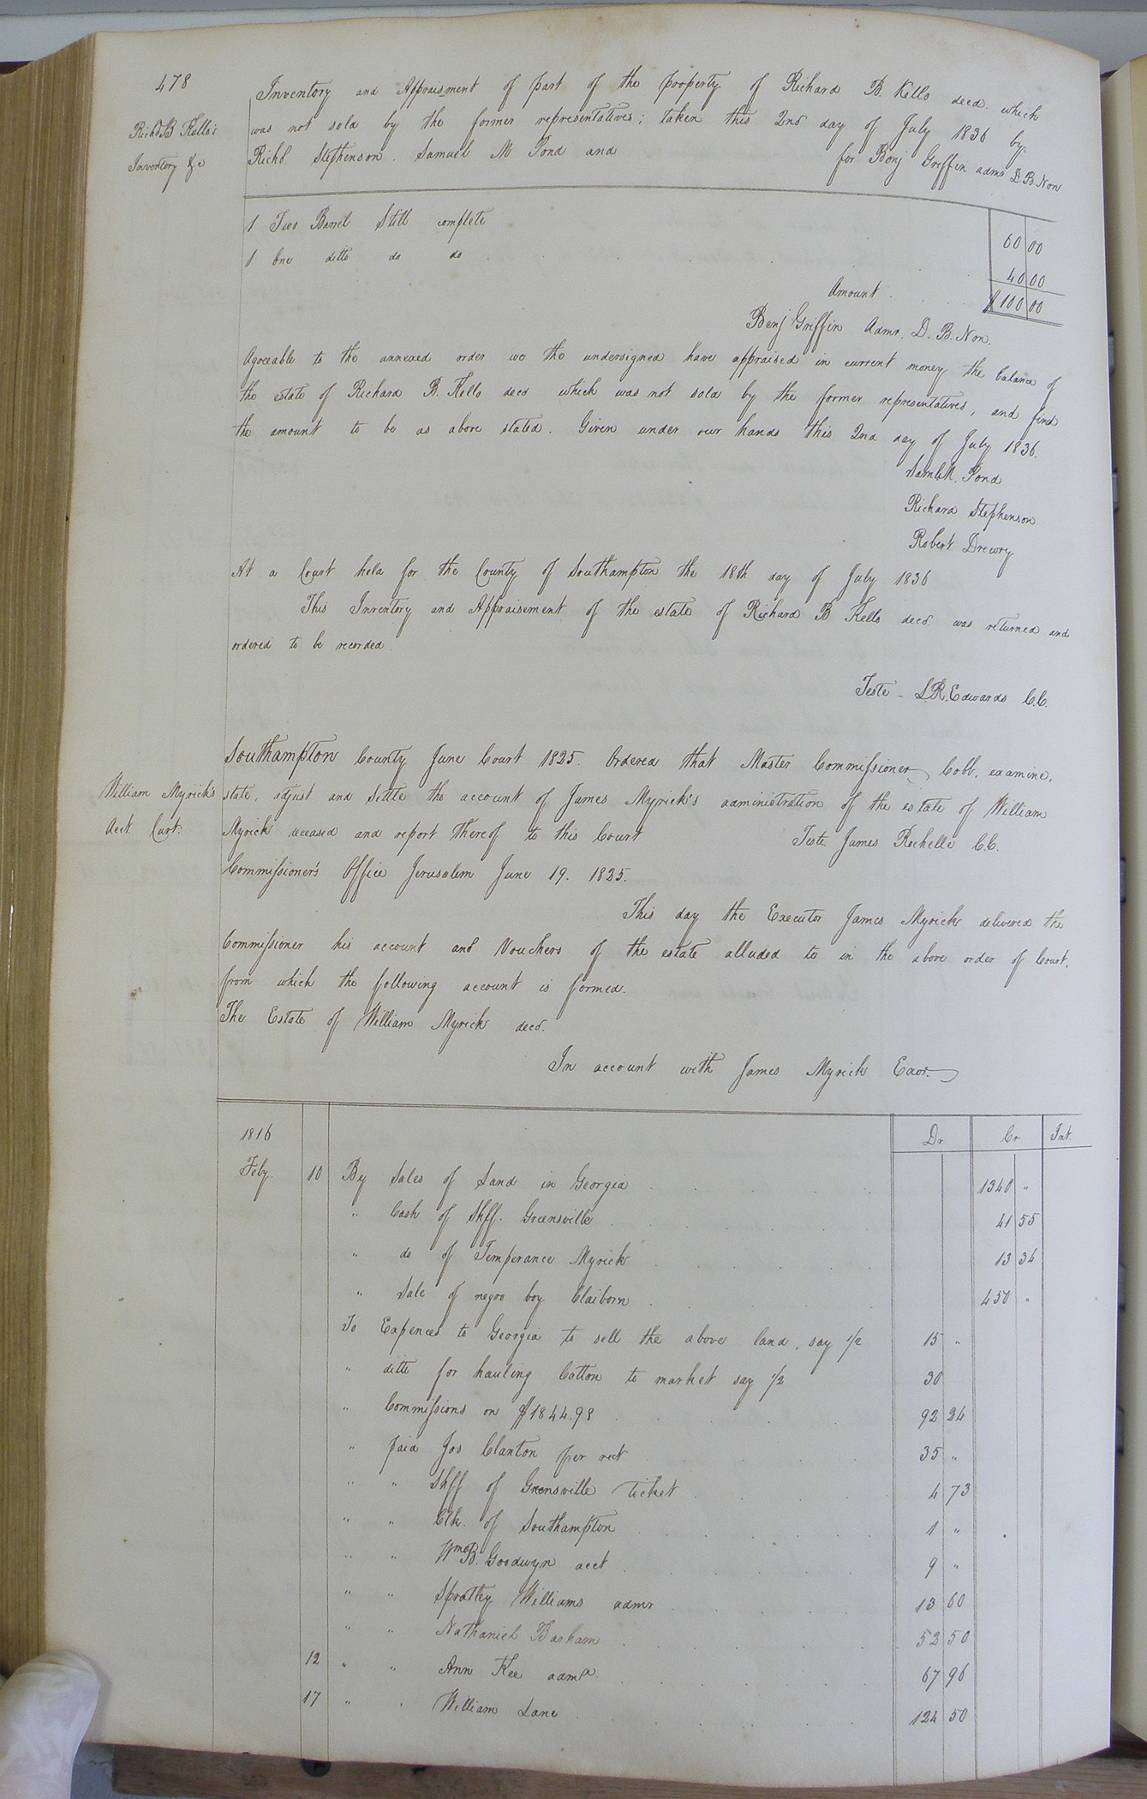 478
Richd B Kello's
Inventory &c
Inventory and Appraisment of part of the property of Richard B. Kello decd. which
was not sold by the former representatives; taken this 2nd day of July 1836 by.
Richd. Stephenson. Samuel M Pond and for Benj Griffin admr D B. Non
1 Two Barril Still complete 60 00
1 One ditto do do 40 00
Amount $100 00
Benj Griffin Admr. D. B. Non.
Agreeable to the annexed order we the undersigned have appraised in current money the balance of
the estate of Richard B. Kello decd which was not sold by the former representatives, and find
the amount to be as above stated. Given under our hands this 2nd day of July 1836.
Saml M. Pond
Richard Stephenson
Robert Drewry
At a Court held for the County of Southampton the 18th day of July 1836
This Inventory and Appraisement of the estate of Richard B Kello decd. was returned and
ordered to be recorded.
Teste - L.R. Edwards C.C.
William Myrick's
Acct Curt.
Southampton County June Court 1825. Ordered that Master Commissioner Cobb, examine,
state, adjust and Settle the account of James Myrick's administration of the estate of William
Myrick deceased and report thereof to this Court Teste James Rochelle C.C.
Commissioner's Office Jerusalem June 19. 1825.
This day the Executor James Myrick delivered the
Commissioner his account and Vouchers of the estate alluded to in the above order of Court,
from which the following account is formed.
The Estate of William Myrick decd.
In account with James Myrick Exor.
1816 Dr Cr Int.
Feby. 10 By Sales of Land in Georgia 1340 "
" Cash of Shff. Greensville 41 55
" do of Temperance Myrick 13 34
" Sale of negro boy Claiborn 450 "
To Expences to Georgia to sell the above land, say 1/2 15 "
" ditto for hauling Cotton to market say 1/2 30
" Commissions on $1844.98 92 24
" paid Jos Clanton per rect 35 "
" " Shff of Grensville Ticket 4 73
" " Clk. of Southampton 1 "
" " Wm B. Goodwyn acct 9 "
" " Spratley Williams admr 13 60
" " Nathaniel Barham 52 50
12 " " Ann Kee admx. 67 96
17 " " William Lane 124 50